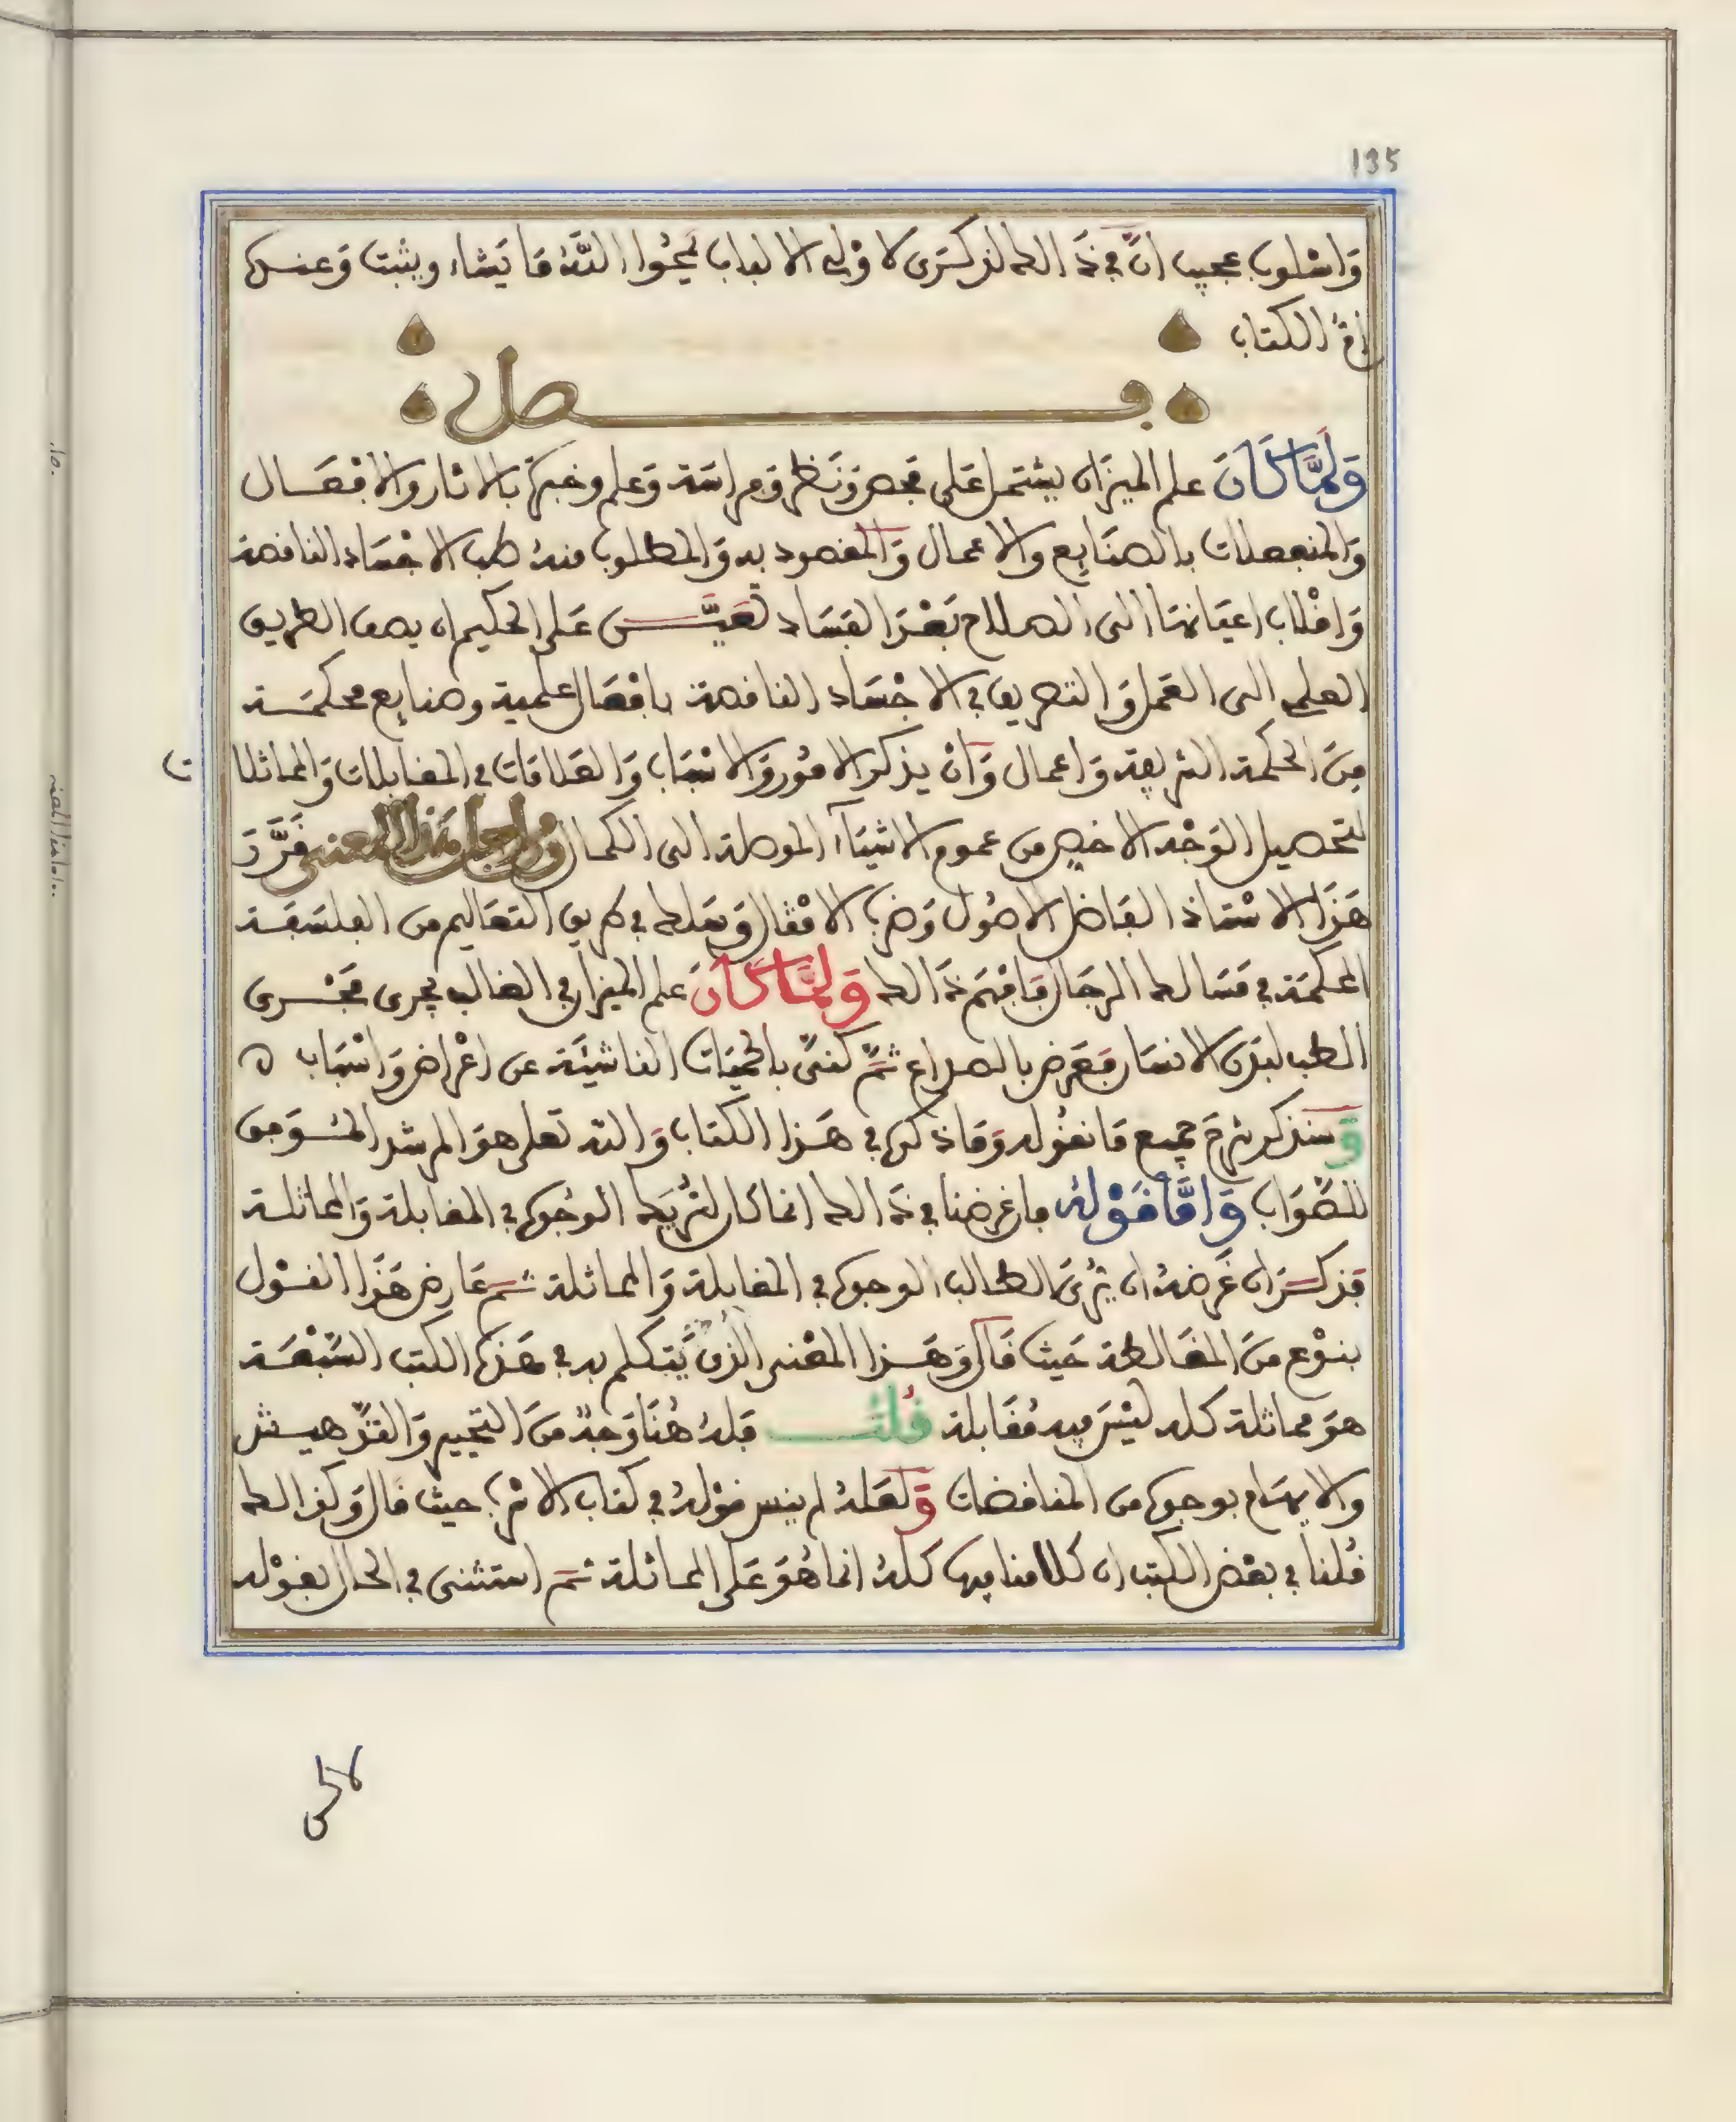 135
وَاسْلوب عجيب اِنَّ في ذَالك لذِكْرَى لأوْلي الالباب يَمْحُوا اللَّهُ مَا يَشاء ويثبت وَعنـده
اُمُّ الكتاب
فـصل
وَلَمَّا كَانَ علم الميزَان يشتمل عَلى فحص وَنَظر وَفراسَة وَعلم وخبرة بالاثار والافعَـال
وَالمنفعلات بالصنَايع والاعمال وَالمقصود به وَالمطلوب منهُ طب الاجْسَاد الناقصة
وَاقْلاب اعيَانهَا الى الصلاح بَعْدَ الفسَاد تَعَيَّـن عَلى الحكيم ان يصف الطريق
العلمي الى العَمل وَالتصريف في الاجْسَاد الناقصة بافعَال علمية وصنايع محكمَـة
مِنَ الحكمة الشريفة وَاعمال وَانْ يذكر الامُور وَالاسْبَاب وَالعَلامَات في المقابلات وَالمماثلا
ت
لتحصيل الوَجْه الاخص من عموم الاشيَآء الموصلة الى الكمـال وَلاجل هَذا المعنى قَرَّرَ
هَذَا الاسْتاذ الفَاضل الاصُول وَضرب الامْثال وَسَلك في طريق التعَاليم من الفلسَفـة
المحكمَة في مَسَالك الرجَال فَافهَم ذَالك وَلَمَّا كَانَ عَلم الميزان في الغالب يجرى مَجْـرى
الطب لبَدَن الانسَان فعَرض بالصداع ثمَّ كَنى بالحمّيَات الناشيَة عن اعْرَاض وَاسْبَاب ه
وَسنذكر شرح جميع مَا نقُوله وَمَا ذكره في هَـذا الكتاب وَالله تعلى هوَ المرشد المُـوَفق
للصَّوَاب وَامَّا قَوْلهُ فان غرضنا في ذَالك انما كان لنُريَك الوجُوه في المقابلة وَالمماثلـة
فذكـر ان غَرضهُ ان يُرىَ الطالب الوجوه في المقابلة وَالمماثلة ثـم عَارض هَذَا القـوْل
بنـوْع منَ المغَالطة حَيث قَال وَهَـذا المعْنى الذي يَتكلم به في هَذه الكتب السَّبْعَـة
هوَ مماثلة كله لَيْسَ فيه مُقَابلة قُلتُ فلهُ هُنَا وَجهٌ منَ التجبير وَالتدهيـش
والايهَام بوجوه من المناقضات وَلَعَلهُ لم ينس قوْلهُ في كتاب الامْر حيث قال وَكذالك
قُلنا في بعْض الكتب ان كلامنا فيها كلهُ انما هُوَ عَلى المماثلة ثـم استثنى في الحال بقوْله